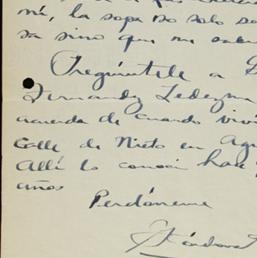 mé, la sopa no solo
sa sino que me
Pregúntele a
Fernandz Ledezma
acuerda de cuando viví
Calle de Nieto en Agu
Allí lo conocí hac
años
Perdóneme
Sandoval